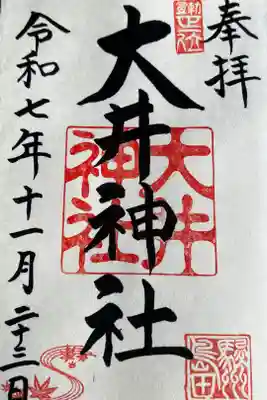 奉拝
大井神社
大井神社
令和七年十一月二十三日